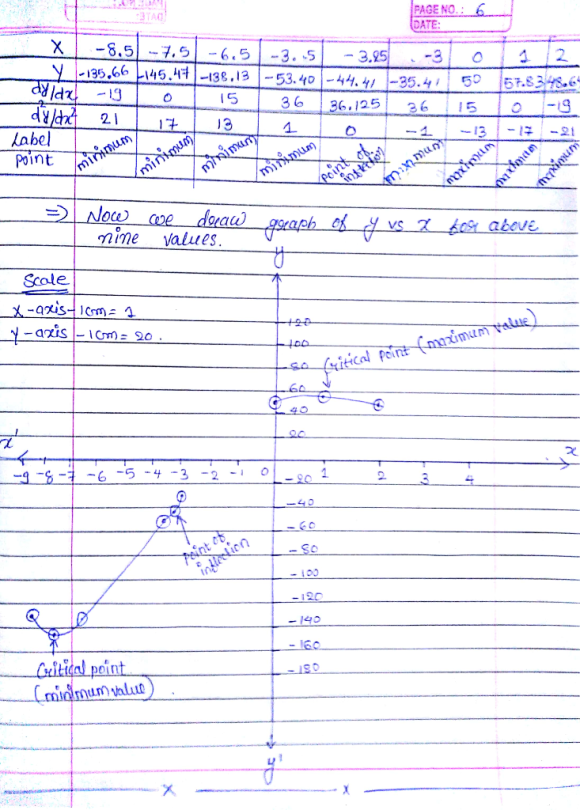 PAGE NO.: 6
DATE:
X -8.5 -7.5 -6.5 -3.5 -3.25 -3 0 1 2
Y -135.66 -145.47 -138.13 -53.40 -44.41 -35.41 50 57.83 48.64
dy/dx -19 0 15 36 36.125 36 15 0 -19
d²y/dx² 21 17 13 1 0 -1 -13 -17 -21
Label point minimum minimum minimum minimum point of inflection maximum maximum maximum maximum
⇒ Now we draw graph of y vs x for above
nine values.
y
Scale
X-axis - 1cm = 1
Y-axis - 1cm = 20.
120
100
80
Critical point (maximum value)
60
40
20
x' x
-9 -8 -7 -6 -5 -4 -3 -2 -1 0 1 2 3 4
-20
-40
-60
Point of inflection
-80
-100
-120
-140
-160
-180
Critical point
(minimum value)
y'
x x